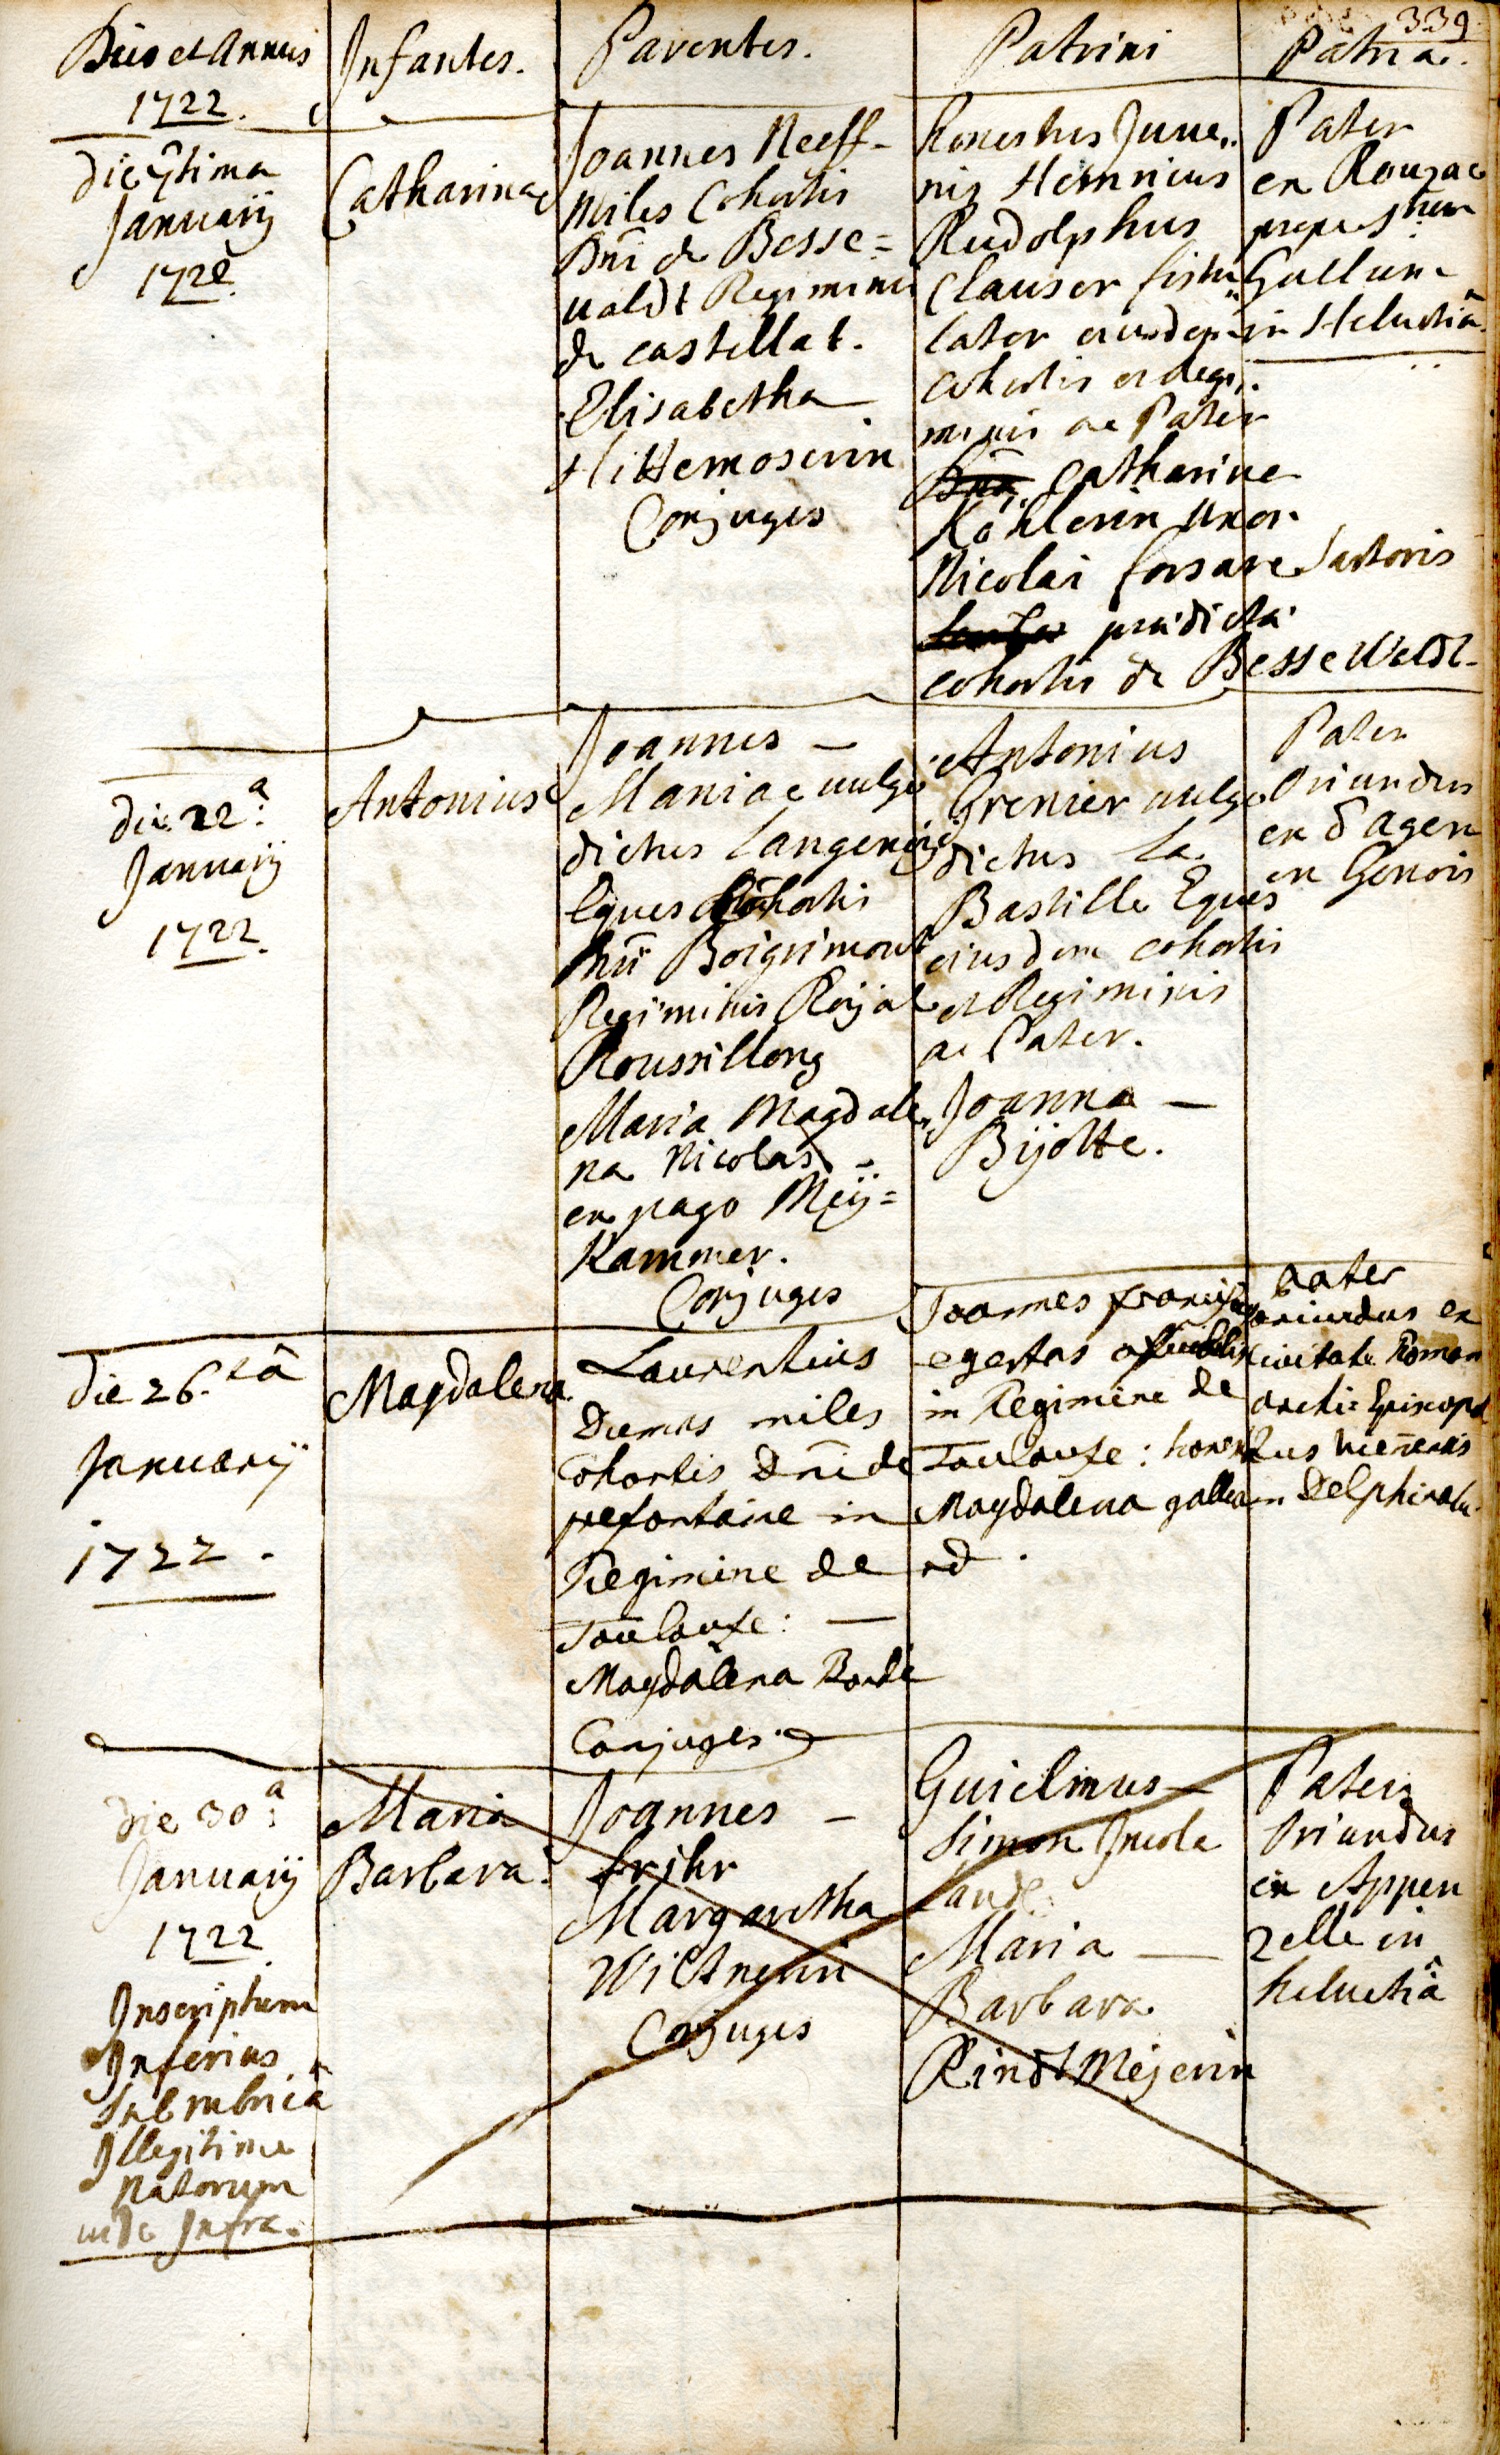 339
Dies et Annus
1722.
Infantes.
Parentes.
Patrini
Patria.
die
January
1722
Catharina
Joannes Neeff-
Miles Cohortis
Dni de Besse=
valdt Regiminis
de castellat.
Elisabetha
Hittemoserin
Conjuges
Honestus Juve„
nis Henricus
Rudolphus
Clauser fistu„
lator eiusdem
cohortis et Regi„
minis ac Pater
Catharina
Köhlerin uxor
Nicolai forsare Sartoris
praedicta
cohortis de Bessewaldt-
Pater
ex
prope Stum
Gallum
in Helvetiâ.
die 22a
January
1722.
Antonius
Joannes —
Maniac vulgo
dictus
Eques Cohortis
Dni Boigrimont
Regiminis Royal
Roussillong
Maria Magdale„
na Nicolas -
ex pago Meÿ=
Kammer.
Conjuges
Antonius
Grenier vulgo
dictus La
Bastille Eques
eiusdem cohortis
et Regiminis
ac Pater.
Joanna —
Bijotte.
Pater
Oriundus
ex d'agen
en Genois
die 26.tâ
January
1722.
Magdalena.
Laurentius
Dumas miles
Cohortis Dni de
prefontaine in
Regimine de
Toulouse: —
Magdalena
Conjuges.
Joannes
egertas
in Regimine de
Toulouse:
Magdalena
pater
oriundus ex
civitate Roman
archi= Episcopa
tus
in Delphinatu.
die 30a
January
1722
Inscriptum
Inferius
Sub rubricâ
Illegitime
Natorum
vide Infra.
Maria
Barbara.
Joannes -
Margaretha
Wiltnerin
Conjuges
Guielmus
Simon Incola
Land.
Maria —
Barbara
Rindt Mejerin
Pater
Oriundus
ex Appen
zelle in
helvetiâ